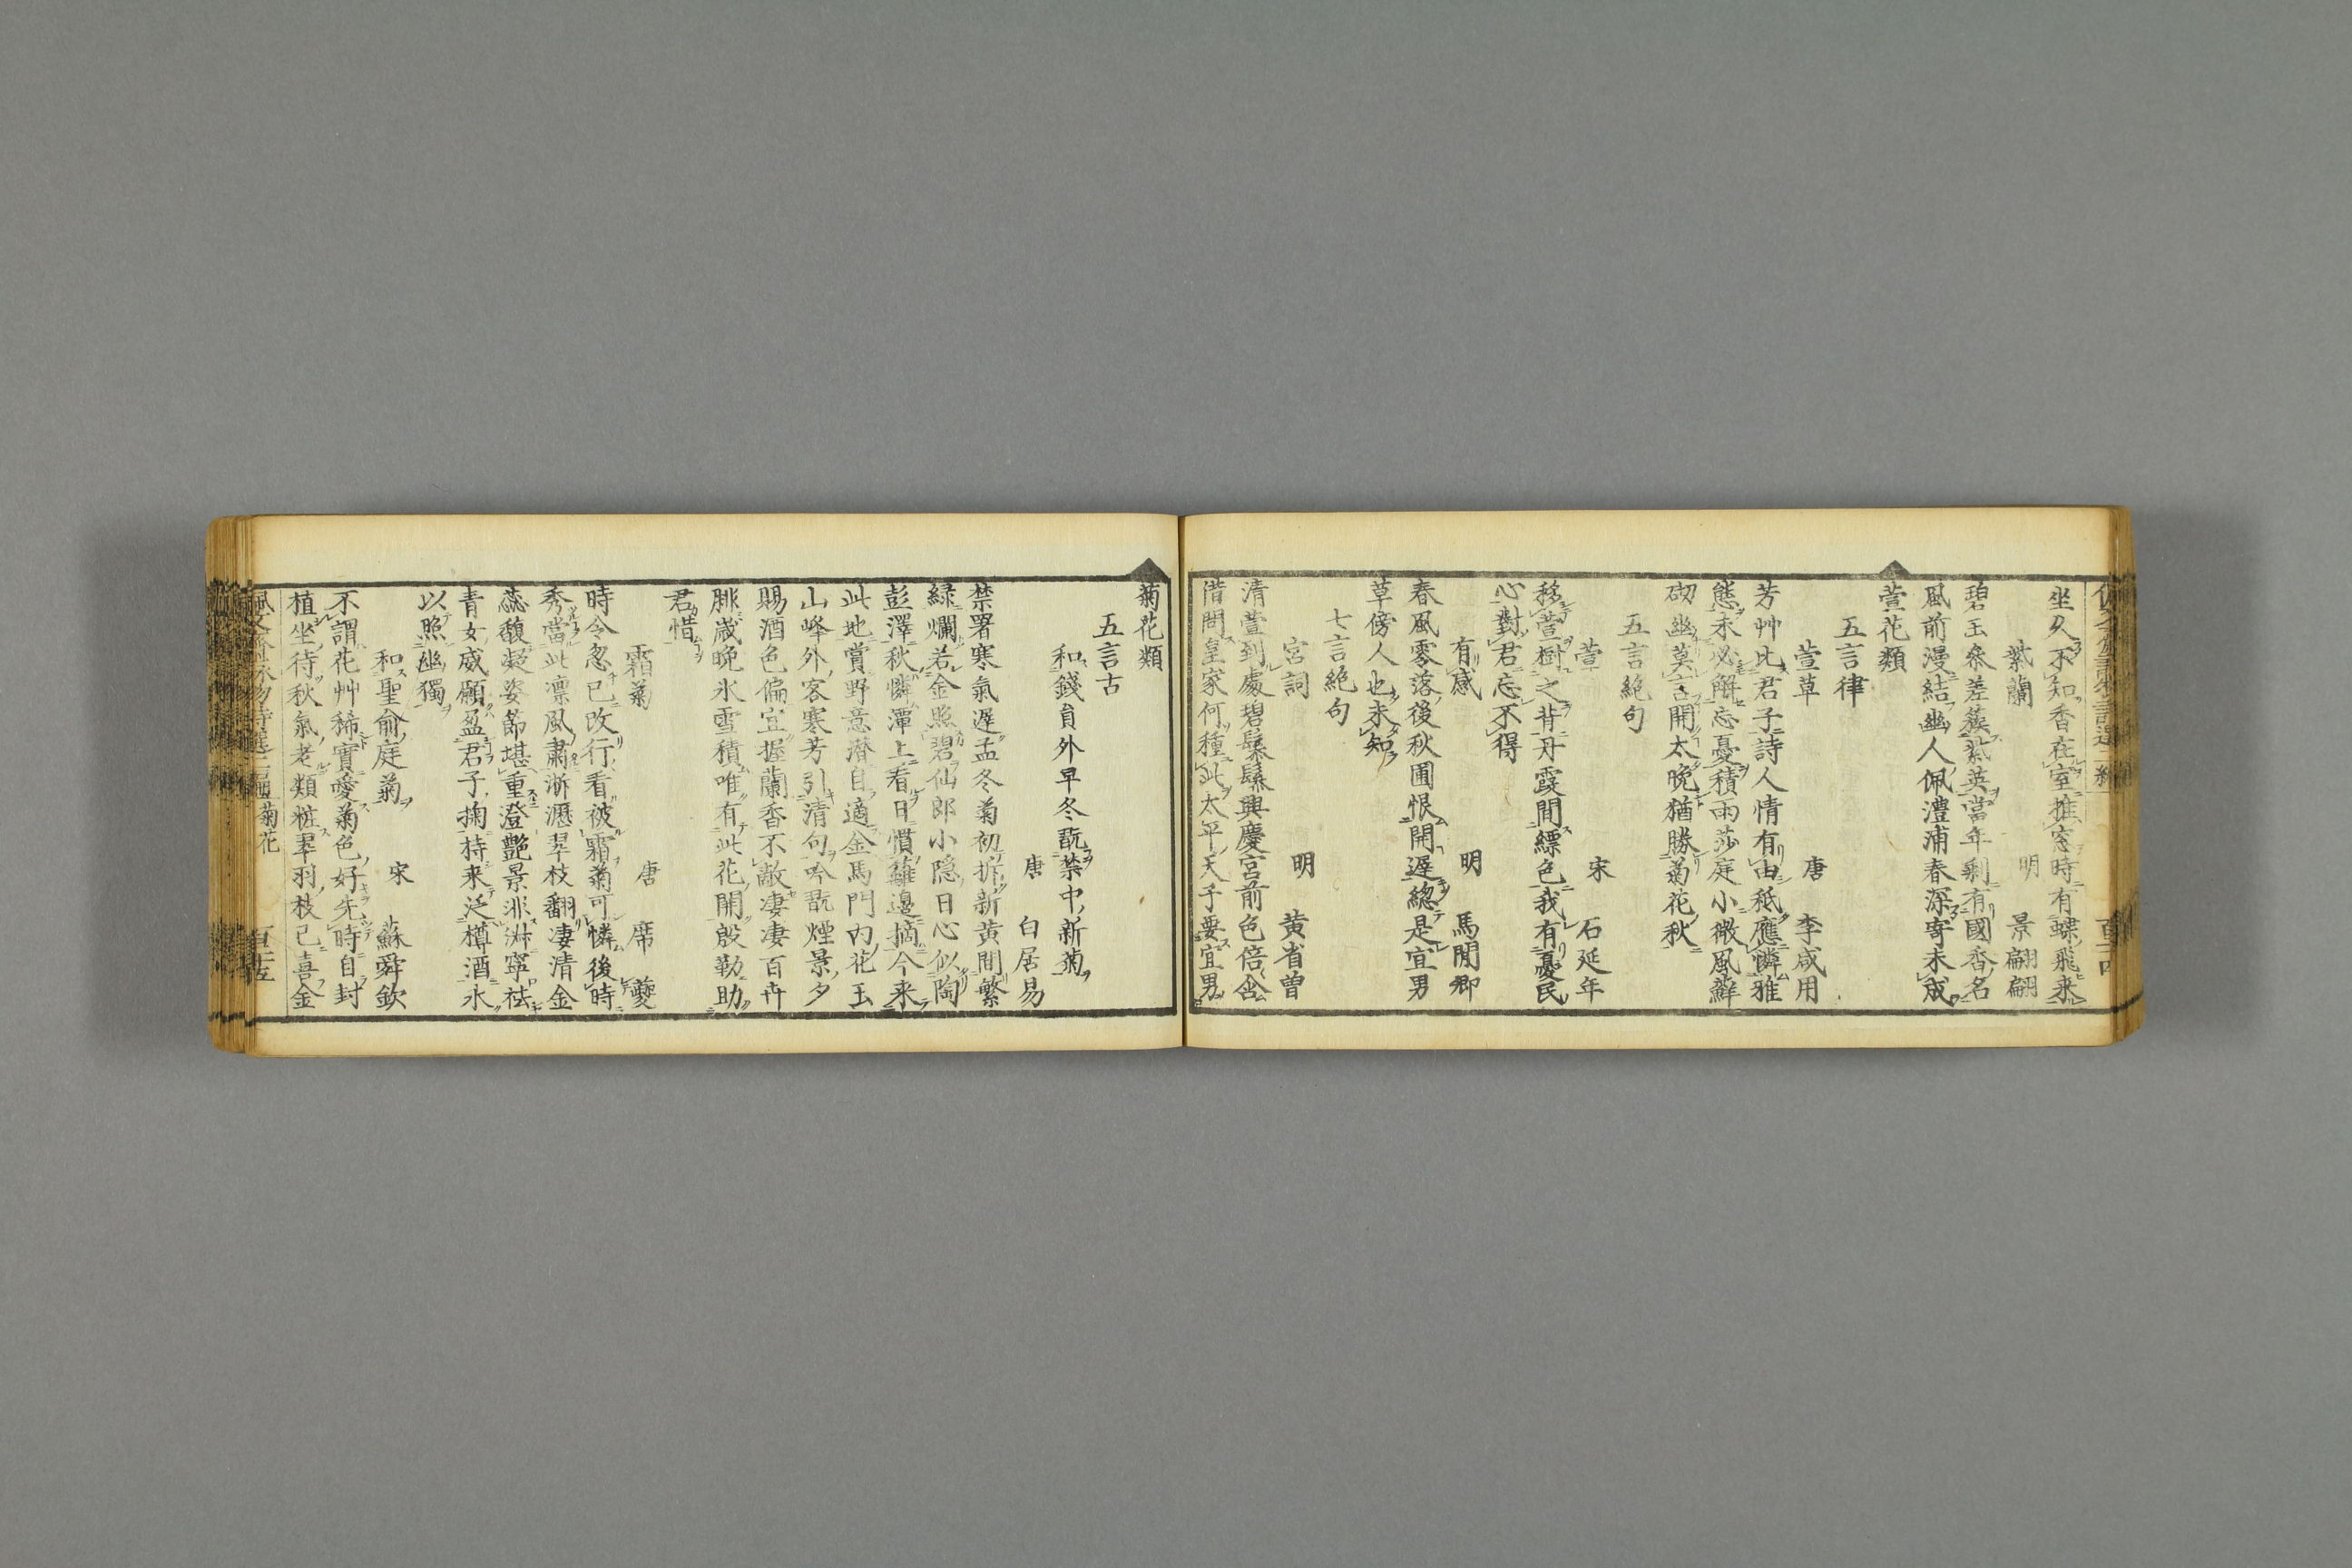 坐久不知香在室推窓時有蝶飛来
紫蘭　明　景翩翩
碧玉叅差簇紫英當年剩有國香名
風前漫結幽人佩澧浦春深寄未成
萱花類
五言律
萱草　唐　李咸用
芳艸比君子詩人情有由秖應憐雅
態未必解忘憂積雨莎庭小微風蘚
砌幽莫言開太晩猶勝菊花秋
五言絶句
萱　宋　石延年
移萱樹之背丹霞間縹色我有憂民
心對君忘不得
有感　明　馬閒卿
春風零落後秋圃恨開遅總是宜男
草傍人也未知
七言絶句
宮詞　明　黄省曽
清萱到處碧鬖鬖興慶宮前色倍含
借問皇家何種此太平天子要宜男
菊花類
五言古
和錢員外早冬翫禁中新菊
唐　白居易
禁署寒氣遅孟冬菊初拆新黄間繁
緑爛若金照碧仙郎小隠日心似陶
彭澤秋憐潭上看日慣籬邊摘今来
此地賞野意潜自適金馬門内花玉
山峰外客寒芳引清句吟翫煙景夕
賜酒色偏宜握蘭香不敵凄凄百卉
腓歳晩氷雪積唯有此花開殷勤助
君惜
霜菊　唐　席夔
時令忽已改行看被霜菊可憐後時
秀當此凛風肅淅瀝翠枝翻凄清金
蕊馥凝姿節堪重澄艶景非淋寧祛
青女威願盈君子掬持来泛樽酒永
以照幽獨
和聖俞庭菊　宋　蘇舜欽
不謂花艸稀實愛菊色好先時自封
植坐待秋氣老類粧翠羽枝已喜金
菊花